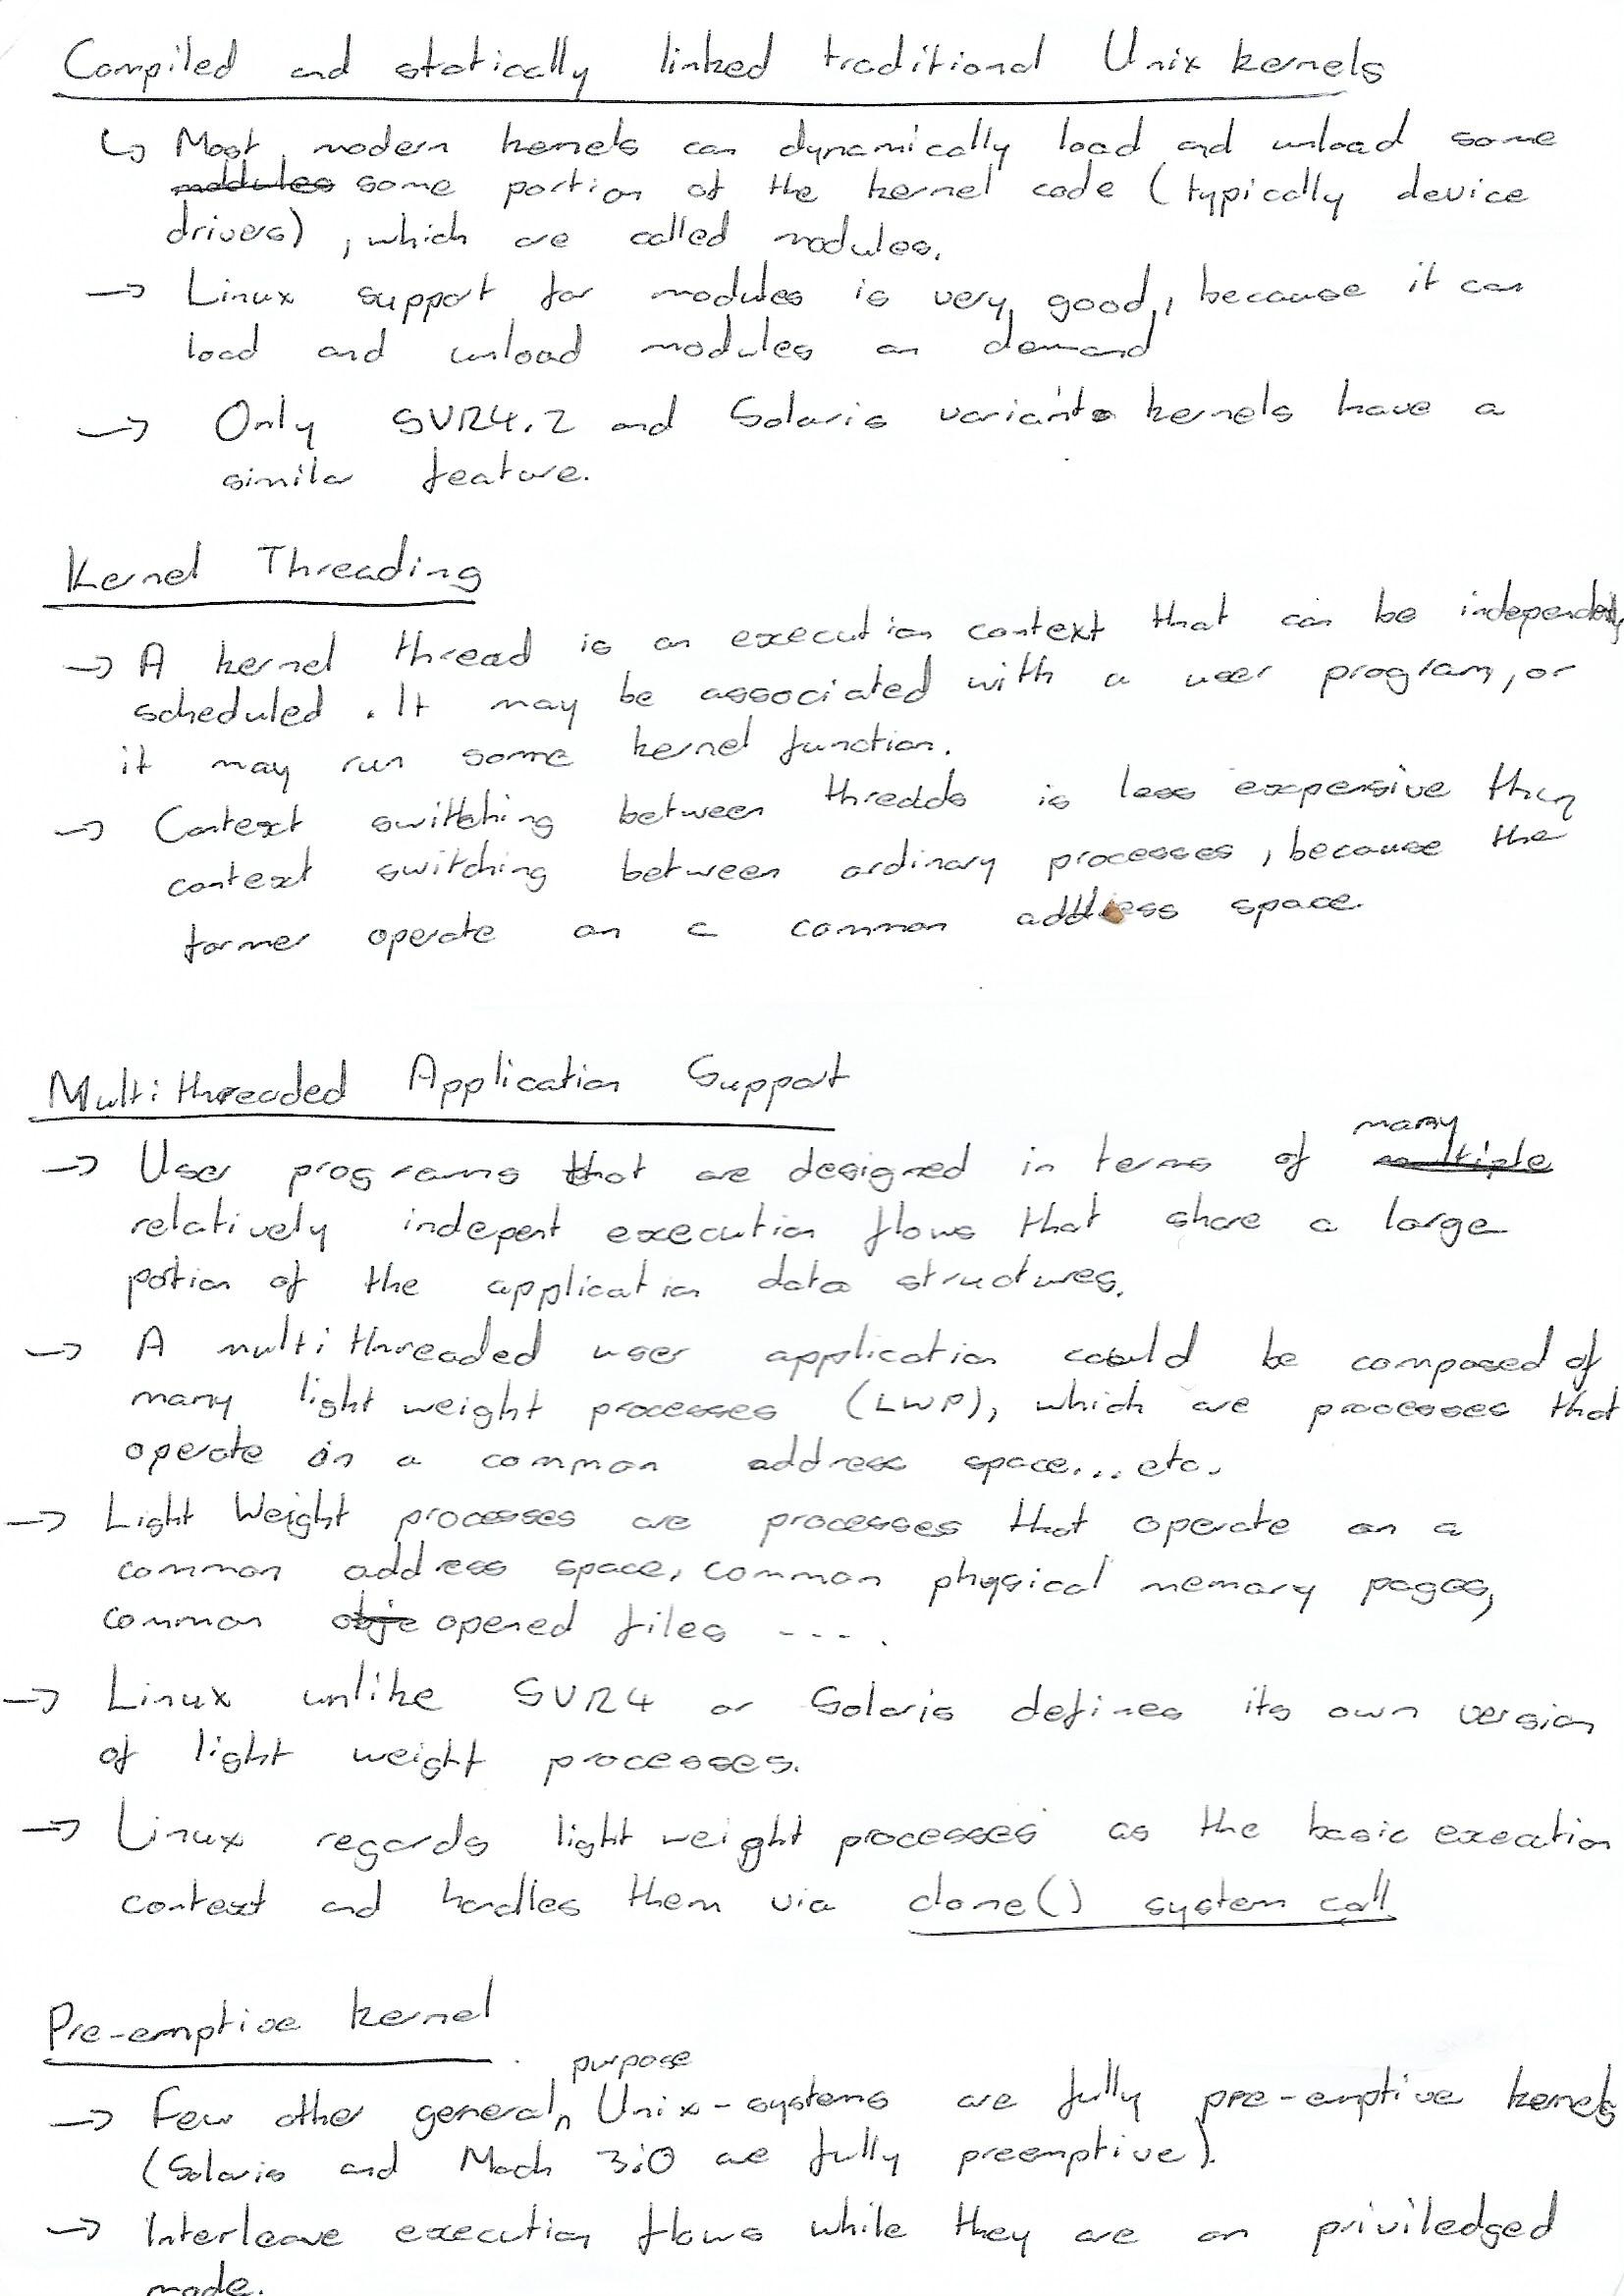 Compiled and statically linked traditional Unix kernels
↳ Most modern kernels can dynamically load and unload some
modules some portion of the kernel code (typically device
drivers), which are called modules.
→ Linux support for modules is very good, because it can
load and unload modules on demand
→ Only SVR4.2 and Solaris variants kernels have a
similar feature.
Kernel Threading
→ A kernel thread is an execution context that can be independently
scheduled. It may be associated with a user program, or
it may run some kernel function.
→ Context switching between threads is less expensive than
context switching between ordinary processes, because the
former operate on a common address space.
Multithreaded Application Support
many
→ User programs that are designed in terms of multiple
relatively indepent execution flows that share a large
potion of the application data structures.
→ A multithreaded user application could be composed of
many light weight processes (LWP), which are processes that
operate in a common address space... etc.
→ Light Weight processes are processes that operate on a
common address space, common physical memory pages,
common obje opened files ----.
→ Linux unlike SVR4 or Solaris defines its own version
of light weight processes.
→ Linux regards light weight processes as the basic execution
context and handles them via clone() system call
Pre-emptive kernel
purpose
→ Few other general Unix-systems are fully pre-emptive kernels
(Solaris and Mach 3.0 are fully preemptive).
→ Interleave execution flows while they are on priviledged
mode.